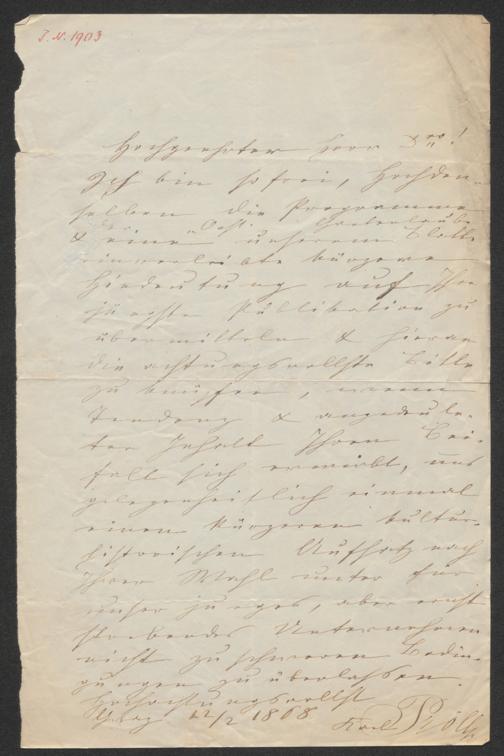 J. N. 1903
Hochgeehrter Herr Drr!
Ich bin so frei, Hochden-
selben die Programme
der „Oest. Gartenlaube
& eine unserem Blatte
einverleibte kürzere
Hindeutung auf Ihre
jüngste Publikation zu
übermitteln & hieran
die achtungsvollste Bitte
zu knüpfen, wenn
Tendenz & angedeute-
ter Inhalt Ihren Bei-
fall sich erwirbt, uns
gelegenheitlich einmal
einen kürzeren kultur-
historischen Aufsatz nach
Ihrer Wahl unter für
unser junges, aber ernst
strebendes Unternehmen
nicht zu schweren Bedin-
gungen zu überlassen.
Hochachtungsvollst
12/2 1868 Karl Pröll